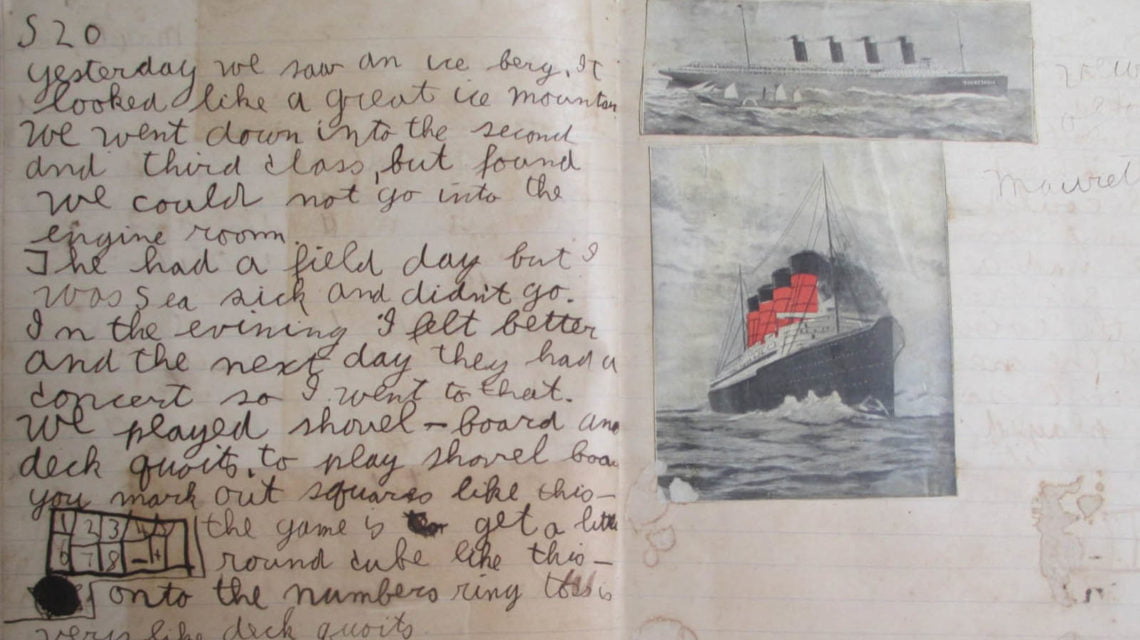 S 20
yesterday we saw an ice berg. It
looked like a great ice mountain
We went down into the second
and third class, but found
we could not go into the
engine room.
The had a field day but I
was sea sick and didn't go.
In the evining I felt better
and the next day they had a
concert so I went to that.
We played shovel-board and
deck quoits. to play shovel boa
you mark out squares like this-
1 2 3 4 5 the game is get a little
6 7 8 - + round cube like this-
onto the numbers ring is
very like deck quoits
Mauret